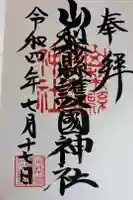 奉拝
山梨縣護國神社
令和四年七月十七日